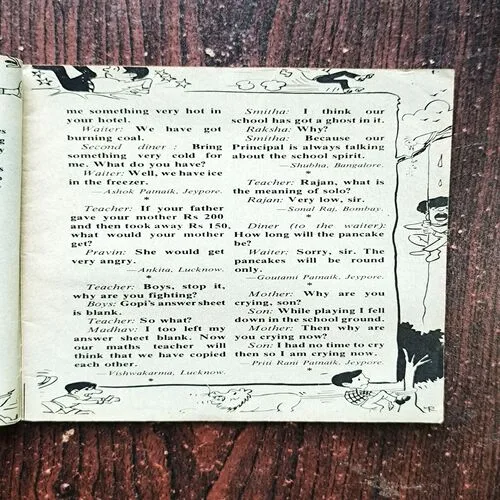 me something very hot in
your hotel.
Waiter: We have got
burning coal.
Second diner : Bring
something very cold for
me. What do you have?
Waiter: Well, we have ice
in the freezer.
—Ashok Patnaik, Jeypore.
*
Teacher: If your father
gave your mother Rs 200
and then took away Rs 150,
what would your mother
get?
Pravin: She would get
very angry.
—Ankita, Lucknow.
*
Teacher: Boys, stop it,
why are you fighting?
Boys: Gopi's answer sheet
is blank.
Teacher: So what?
Madhav: I too left my
answer sheet blank. Now
our maths teacher will
think that we have copied
each other.
—Vishwakarma, Lucknow.
*
Smitha: I think our
school has got a ghost in it.
Raksha: Why?
Smitha: Because our
Principal is always talking
about the school spirit.
—Shubha, Bangalore.
*
Teacher: Rajan, what is
the meaning of solo?
Rajan: Very low, sir.
—Sonal Raj, Bombay.
*
Diner (to the waiter):
How long will the pancake
be?
Waiter: Sorry, sir. The
pancakes will be round
only.
—Goutami Patnaik, Jeypore.
*
Mother: Why are you
crying, son?
Son: While playing I fell
down in the school ground.
Mother: Then why are
you crying now?
Son: I had no time to cry
then so I am crying now.
—Priti Rani Patnaik, Jeypore.
*